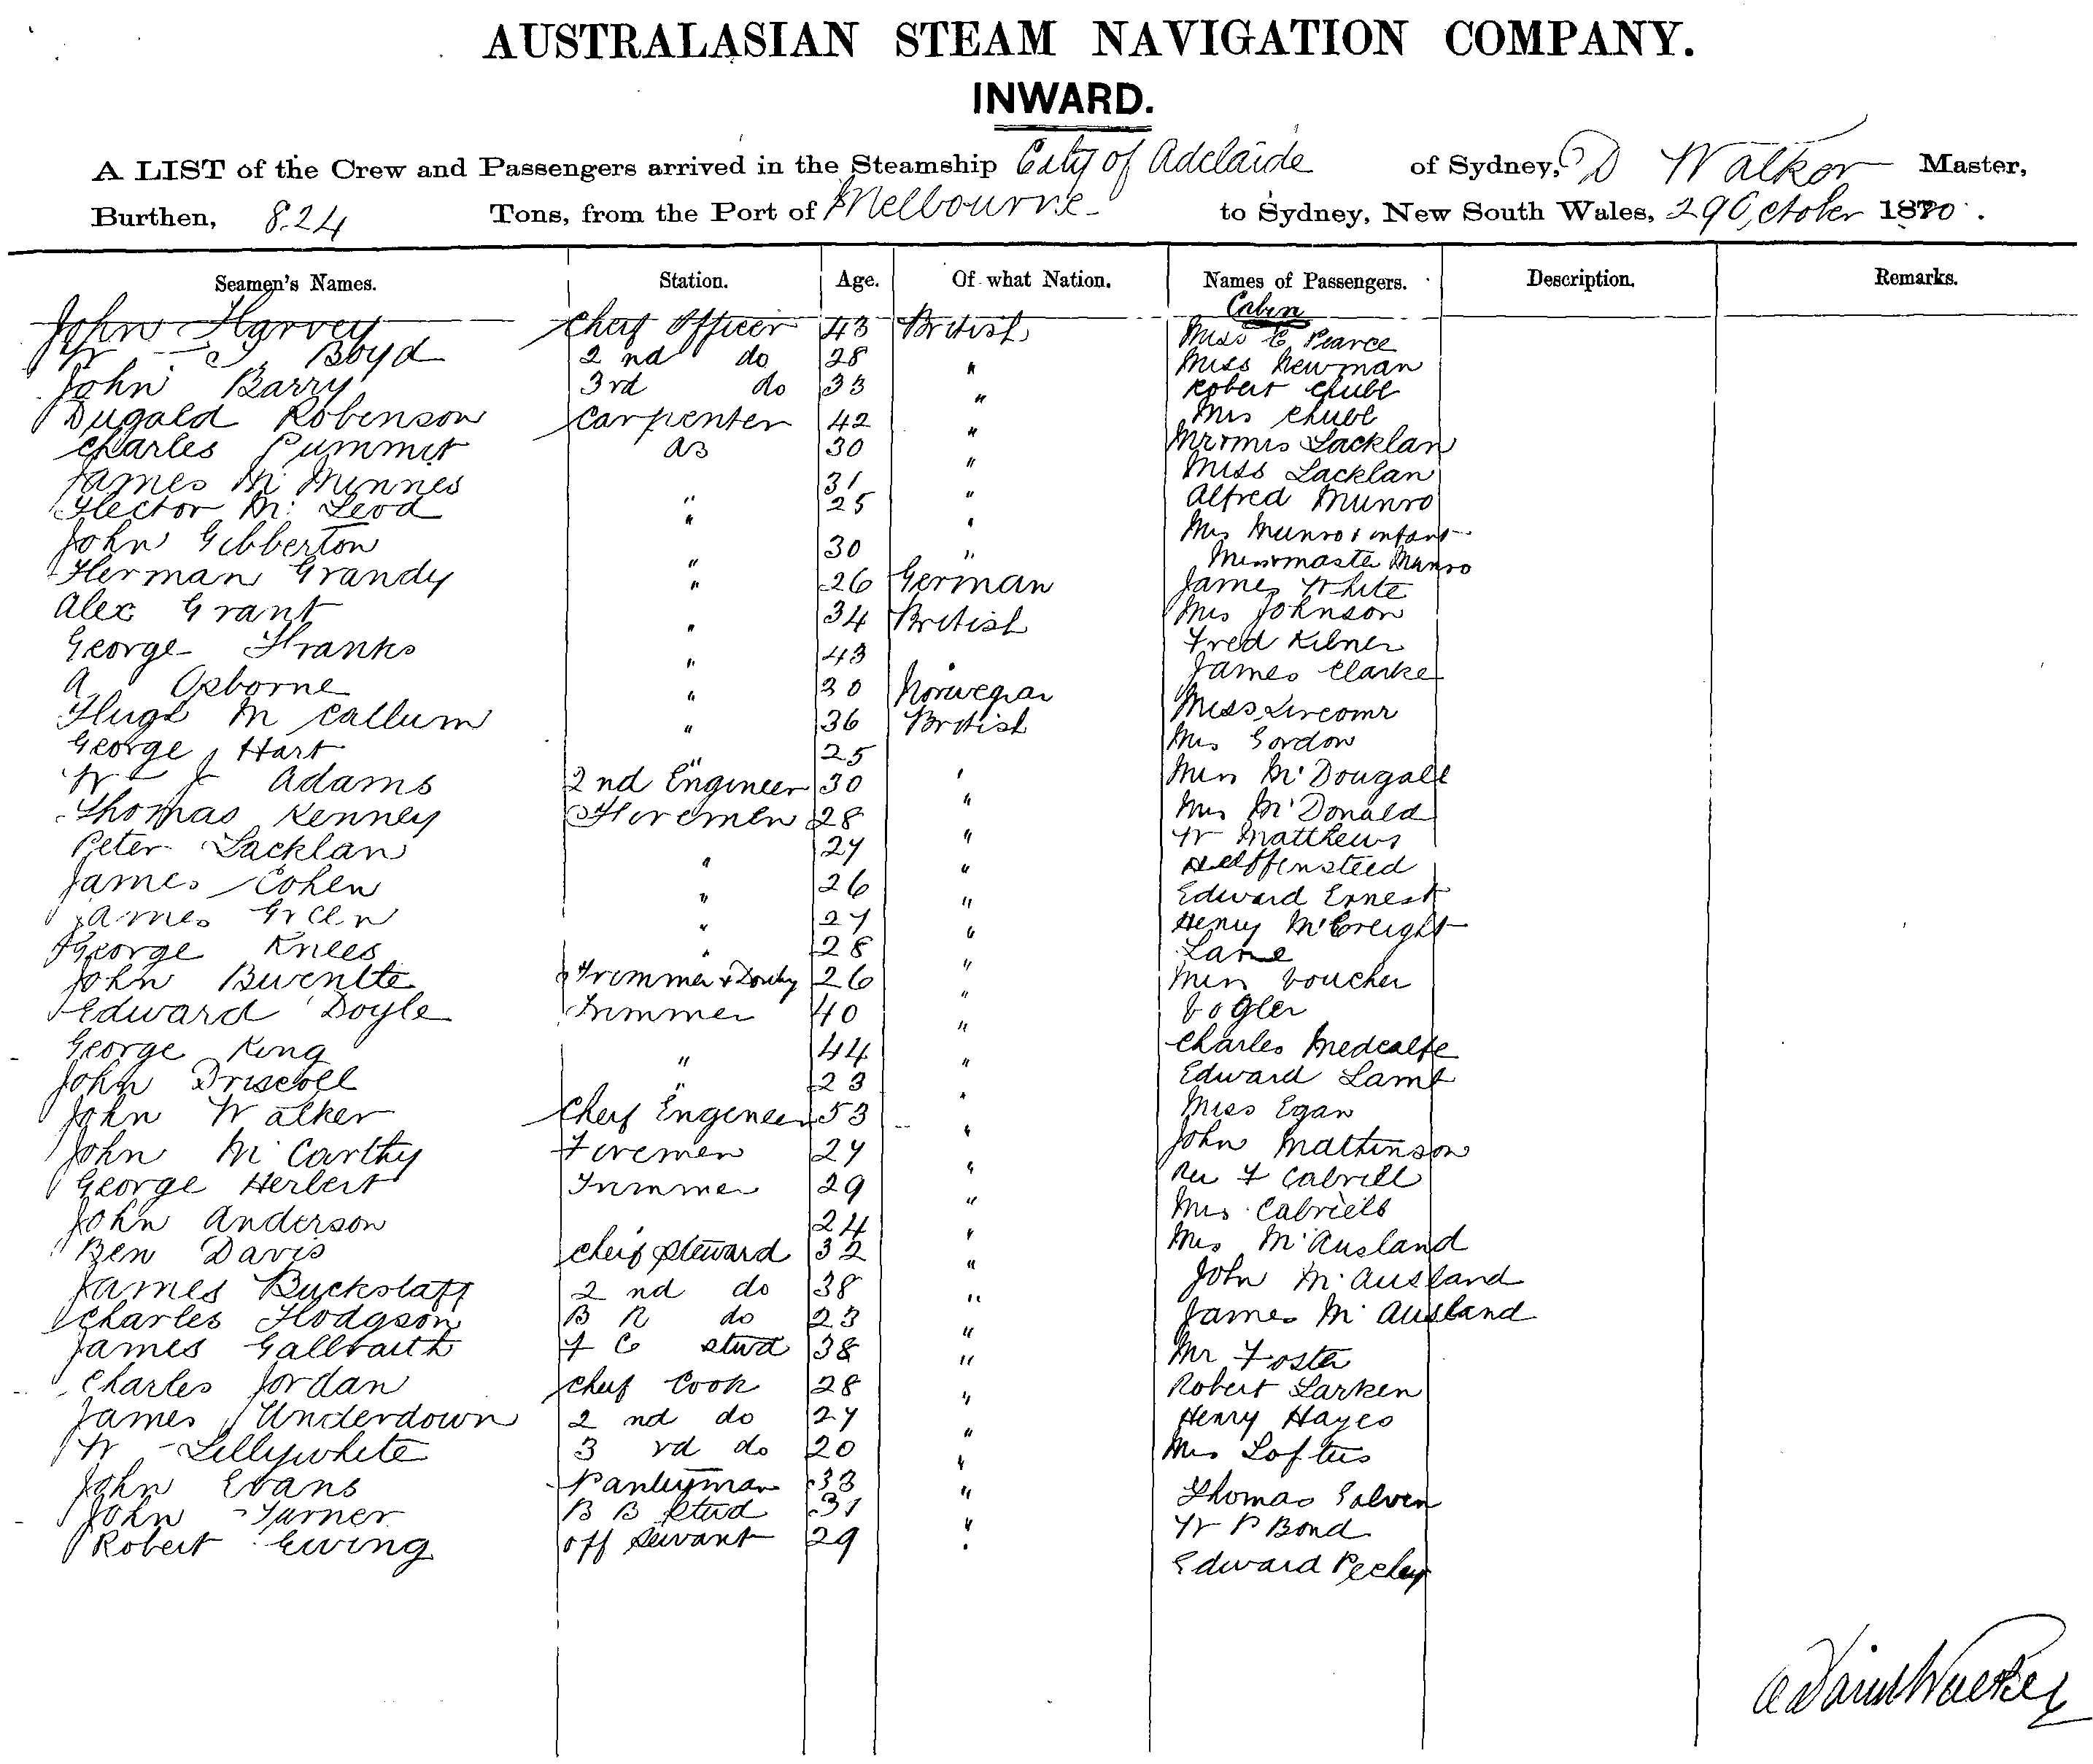 AUSTRALASIAN STEAM NAVIGATION COMPANY.
INWARD.
A LIST of the Crew and Passengers arrived in the Steamship City of Adelaide of Sydney, D Walker Master,
Burthen, 824 Tons, from the Port of Melbourne to Sydney, New South Wales, 29 October 1880.
Seamen's Names. Station. Age. Of what Nation. Names of Passengers. Description. Remarks.
Cabin
John Harvey Cheif Officer 43 British Miss E Pearce
W J Boyd 2 nd do 28 " Miss Newman
John Barry 3rd do 33 " Robert Chubb
Dugald Robenson Carpenter 42 " Mrs Chubb
Charles Pummit AB 30 " Mr & Mrs Lacklan
James Mc Minnes " 31 " Miss Lacklan
Hector Mc Leod " 25 " Alfred Munro
John Gibberton " 30 " Mrs Munro & infant
Miss & Master Munro
Herman Grandy " 26 German James White
Alex Grant " 34 British Mrs Johnson
George Franks " 43 Fred Kilner
A Osborne " 30 Norwegian James Clarke
Hugh Mc Callum " 36 British Miss
George Hart " 25 Mrs Gordon
W J Adams 2 nd Engineer 30 " Miss McDougall
Thomas Kenney Firemen 28 " Mrs McDonald
Peter Lacklan " 27 " W Matthews
James Cohen " 26 "
James Green " 27 " Edward Ernest
George Knees " 28 " Henry McCreight
Lane
John Trimmer & Donkey 26 " Miss Voucher
Edward Doyle Trimmer 40 " Vogler
George King " 44 " Charles Medcalfe
John Driscoll " 23 " Edward Lamb
John Walker Cheif Engineer 53 " Miss Egan
John McCarthy Firemen 27 " John Mathinson
George Herbert Trimmer 29 " Rev F Cabriel
John Anderson 24 " Mrs Cabriels
Ben Davis Cheif Steward 32 " Mrs McAusland
James Buckstaff 2 nd do 38 " John McAusland
Charles Hodgson B R do 23 " James McAusland
James Gallbraith F C stwd 38 " Mr Foster
Charles Jordan Cheif Cook 28 " Robert Larken
James Underdown 2 nd do 27 " Henry Hayes
W Lillywhite 3 rd do 20 " Mrs Loftus
John Evans Pantryman 33 " Thomas Galven
John Turner B B Stwd 31 " W P Bond
Robert Ewing off Servant 29 " Edward
Walker